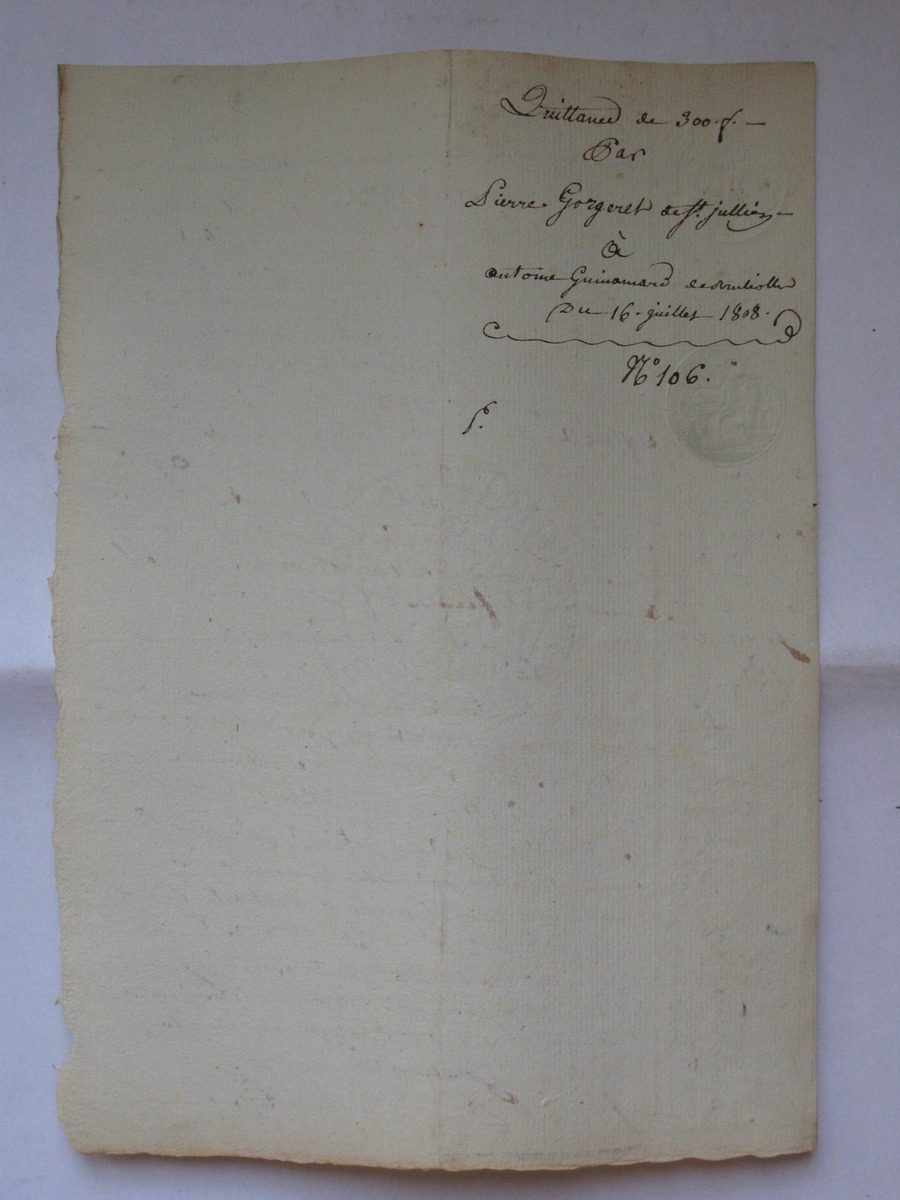 Quittance de 300 f. —
Par
Pierre Gorgeret de St. jullien —
à
antoine Guinamard
Du 16 juillet 1808.
N° 106.